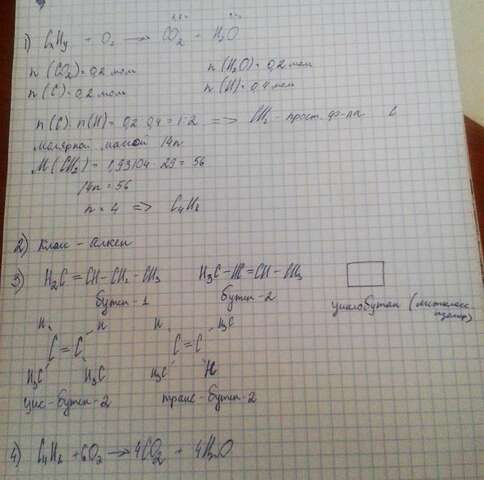 1) CxHy + O2 → CO2 + H2O
n(CO2) = 0,2 моль n(H2O) = 0,2 моль
n(C) = 0,2 моль n(H) = 0,4 моль
n(C) : n(H) = 0,2 : 0,4 = 1 : 2 => CH2 - прост. ф-ла с
молярной массой 14n
M(CH2) = 1,93104 · 29 = 56
14n = 56
n = 4 => C4H8
2) Класс - алкен
3) H2C = CH - CH2 - CH3 H3C - HC = CH - CH3
бутен-1 бутен-2 циклобутан (межкласс. изомер)
H H H H3C
C = C C = C
H3C H3C H3C H
цис-бутен-2 транс-бутен-2
4) C4H8 + 6O2 → 4CO2 + 4H2O